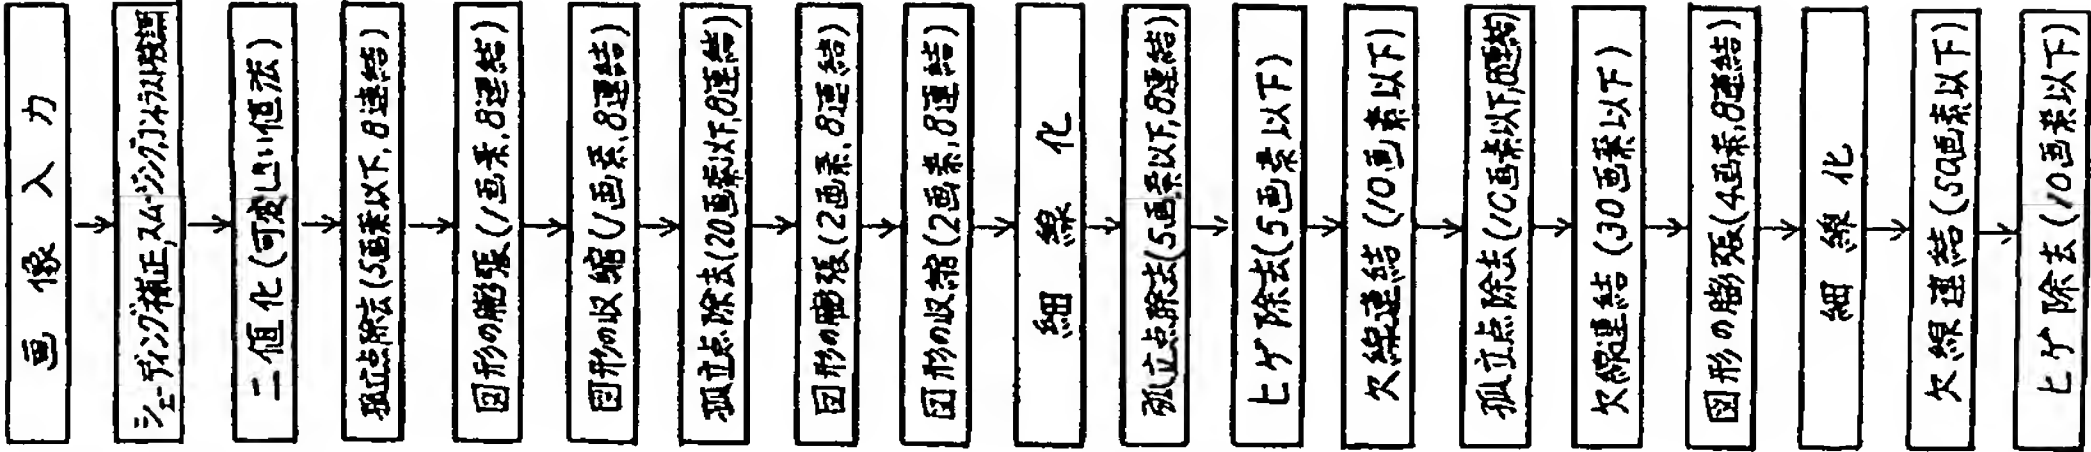 画像入力
シェーディング補正,スムージング,コントラスト強調
二値化(可変しきい値法)
孤立点除去(5画素以下,8連結)
図形の膨張(1画素,8連結)
図形の収縮(1画素,8連結)
孤立点除去(20画素以下,8連結)
図形の膨張(2画素,8連結)
図形の収縮(2画素,8連結)
細線化
孤立点除去(5画素以下,8連結)
ヒゲ除去(5画素以下)
欠線連結(10画素以下)
孤立点除去(10画素以下,8連結)
欠線連結(30画素以下)
図形の膨張(4画素,8連結)
細線化
欠線連結(50画素以下)
ヒゲ除去(10画素以下)